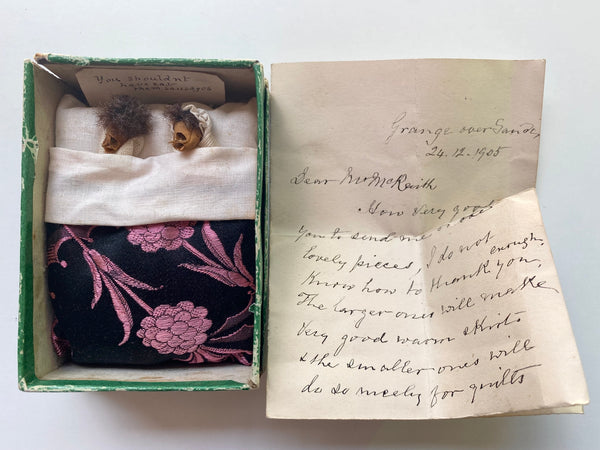 You shouldn't
have eat
them sausages
Grange over Sands,
24.12.1905
Dear Mr McKeith
How very good
You to send me
lovely pieces, I do not
Know how to thank you enough,
The larger ones will make
Very good warm skirts
& the smaller ones will
do so nicely for quilts